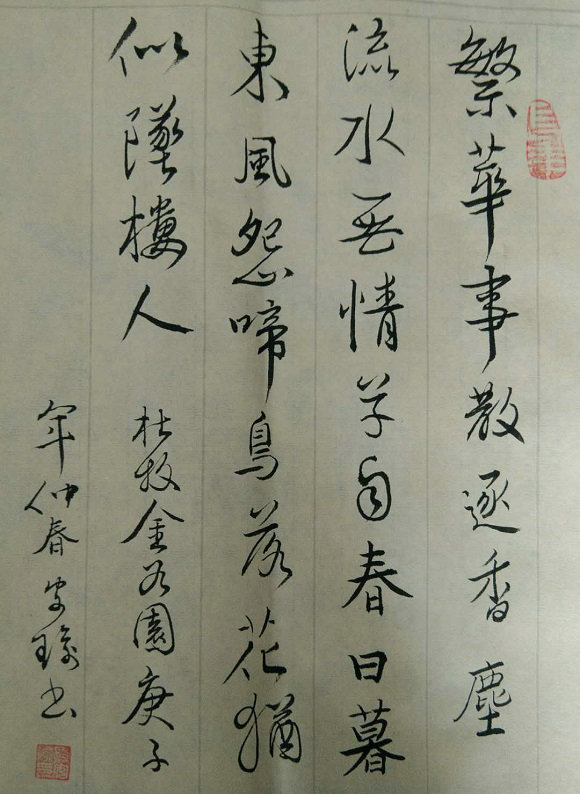 繁華事散逐香塵
流水無情草自春日暮
東風怨啼鳥落花猶
似墜樓人 杜牧金谷園庚子
年仲春 书